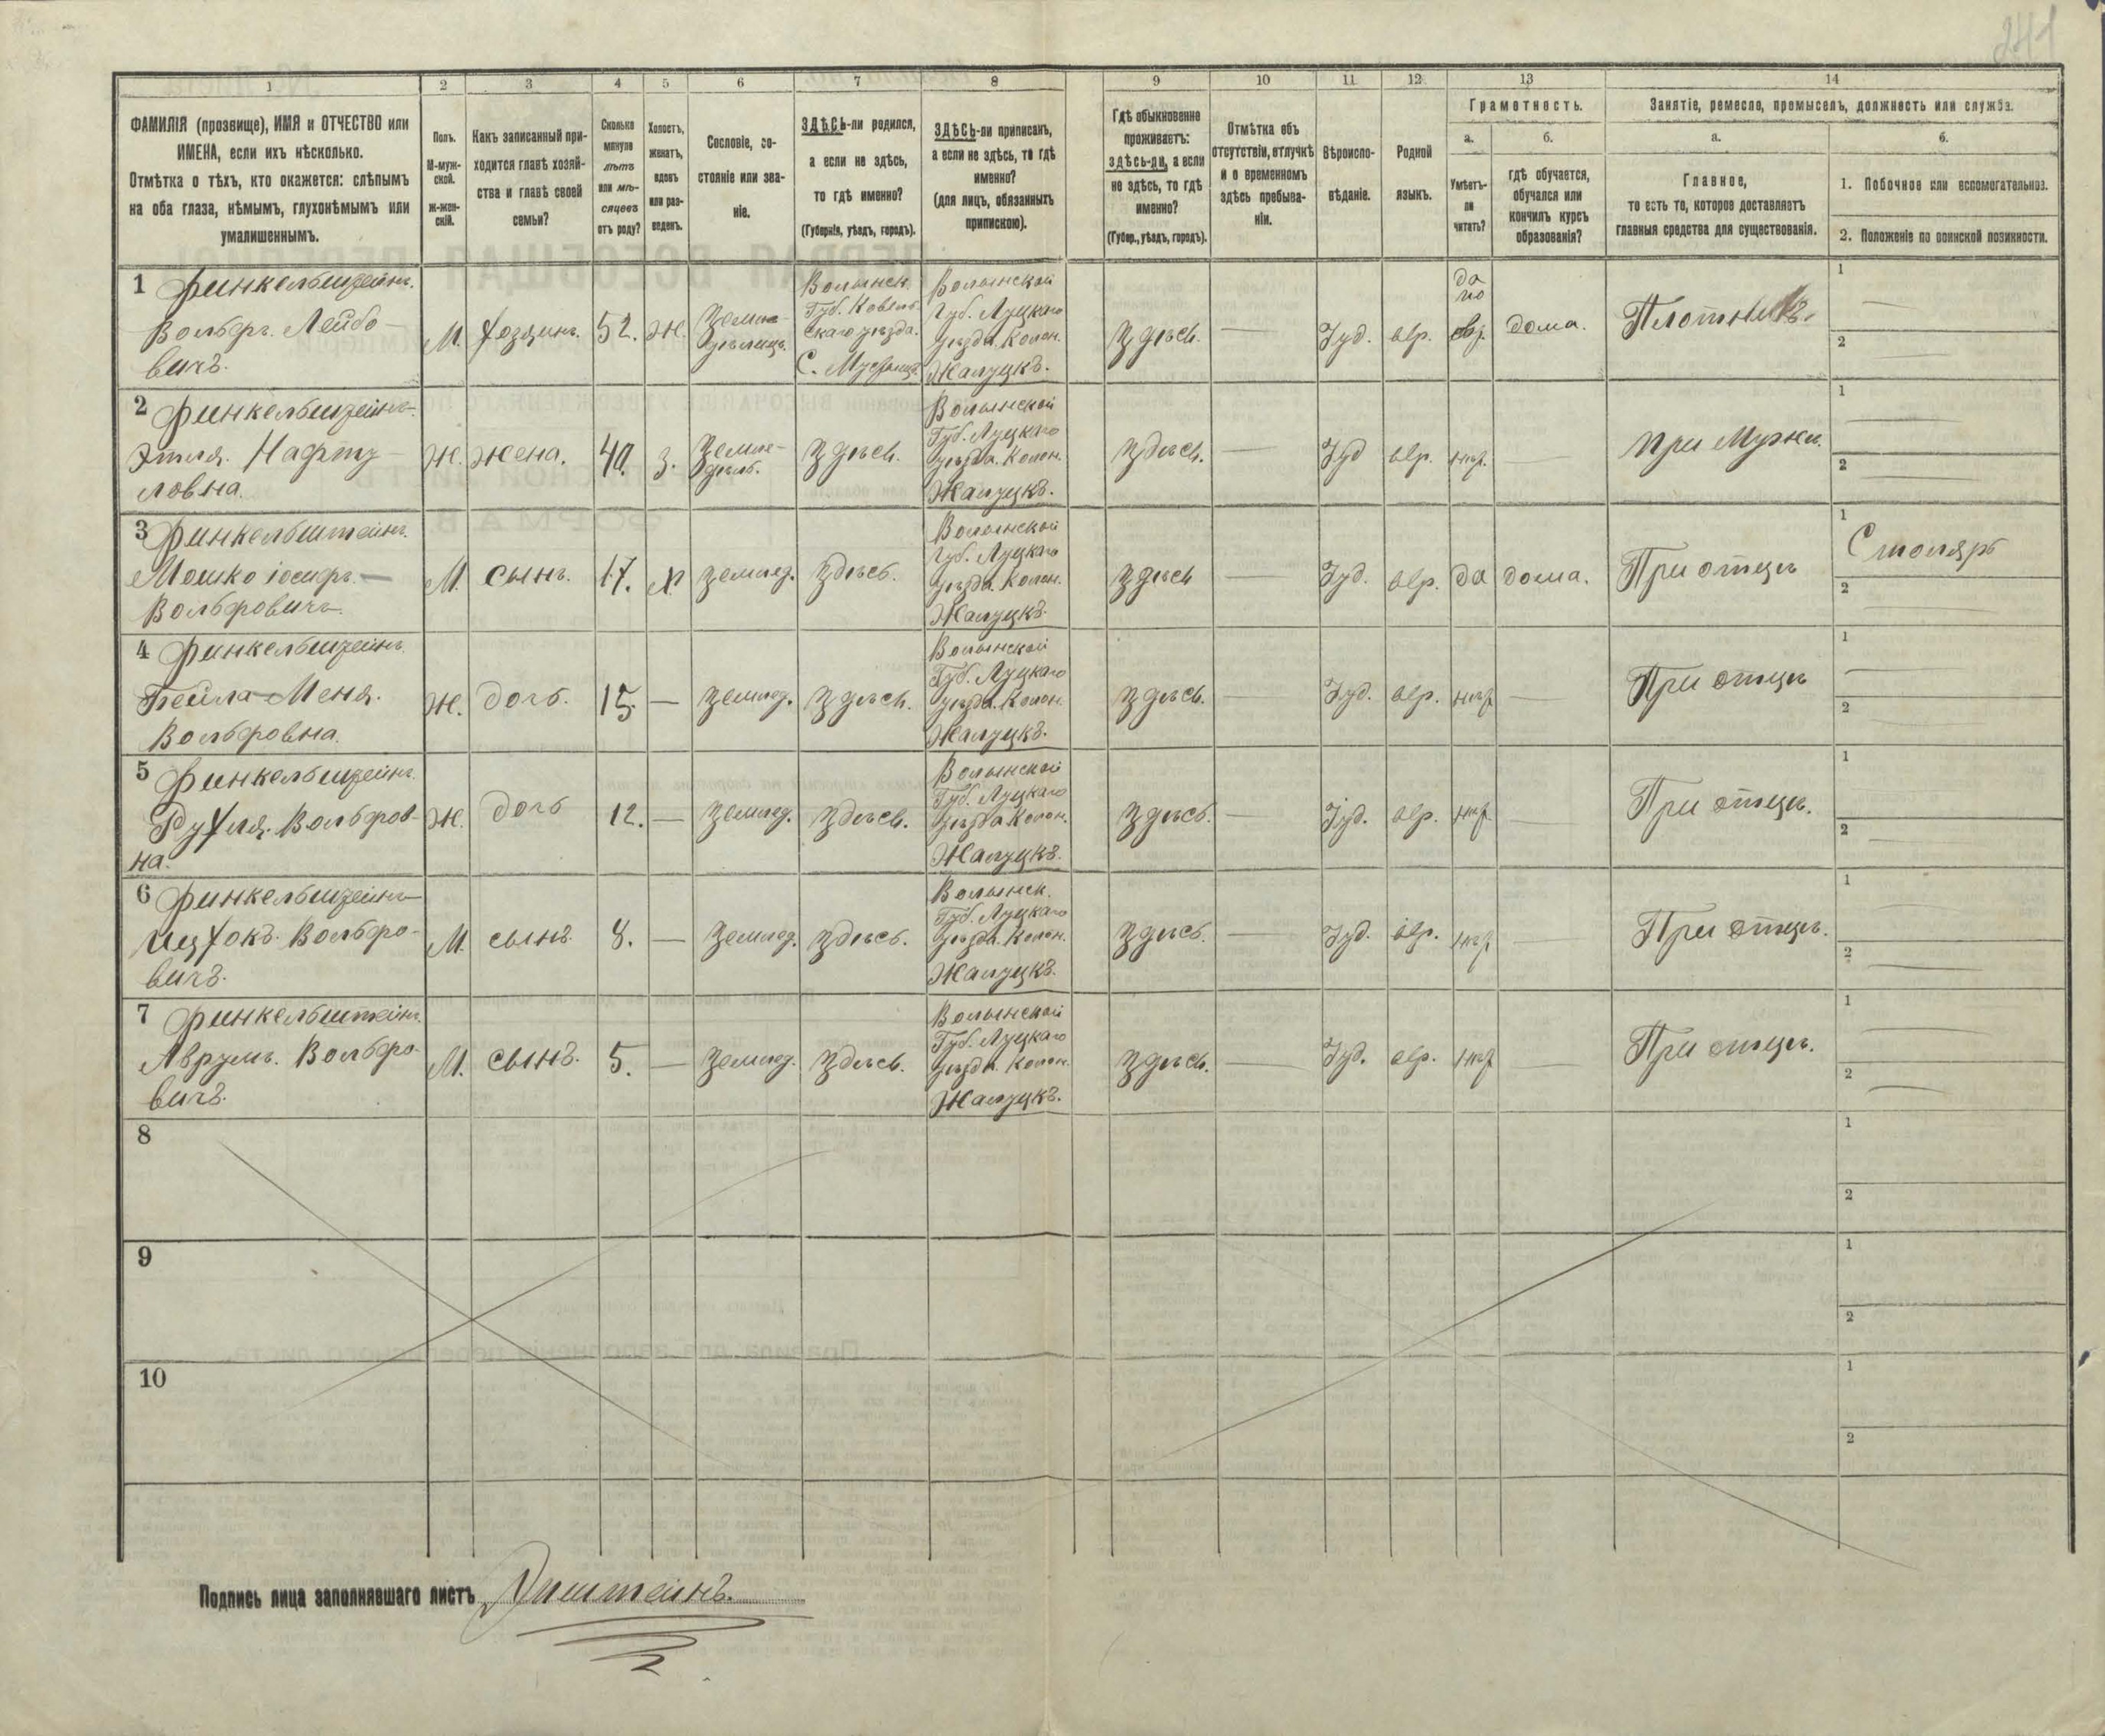 241
1
2
3
4
5
6
7
8
9
10
11
12
13
14
ФАМИЛІЯ (прозвище), ИМЯ и ОТЧЕСТВО или
ИМЕНА, если ихъ нѣсколько.
Отмѣтка о тѣхъ, кто окажется: слѣпымъ
на оба глаза, нѣмымъ, глухонѣмымъ или
умалишеннымъ.
Полъ.
М-муж-
ской.
Ж-жен-
скій.
Какъ записанный при-
ходится главѣ хозяй-
ства и главѣ своей
семьи?
Сколько
минуло
лѣтъ
или мѣ-
сяцевъ
отъ роду?
Холостъ,
женатъ,
вдовъ
или раз-
веденъ.
Сословіе, со-
стояніе или зва-
ніе.
ЗДѢСЬ-ли родился,
а если не здѣсь,
то гдѣ именно?
(Губернія, уѣздъ, городъ).
ЗДѢСЬ-ли приписанъ,
а если не здѣсь, то гдѣ
именно?
(для лицъ, обязанныхъ
припискою).
Гдѣ обыкновенно
проживаетъ:
здѣсь-ли, а если
не здѣсь, то гдѣ
именно?
(Губер., уѣздъ, городъ).
Отмѣтка объ
отсутствіи, отлучкѣ
и о временномъ
здѣсь пребыва-
ніи.
Вѣроиспо-
вѣданіе.
Родной
языкъ.
Грамотность.
а.
Умѣетъ-
ли
читать?
б.
гдѣ обучается,
обучался или
кончилъ курсъ
образованія?
Занятіе, ремесло, промыселъ, должность или служба.
а.
Главное,
то есть то, которое доставляетъ
главныя средства для существованія.
б.
1. Побочное или вспомогательное.
2. Положеніе по воинской повинности.
1 Финкельштейнъ.
Вольфъ. Лейбо-
вичъ.
М.
Хозяинъ.
52.
Ж.
Земле-
дѣлецъ.
Волынск.
Губ. Ковель-
скаго уѣзда.
С.
Волынской
Губ. Луцкаго
уѣзда. Колон.
Жалуцкъ.
Здѣсь.
—
Іуд.
евр.
да
по
евр.
дома.
Плотникъ.
1 —
2
2 Финкельштейнъ.
Этля. Нафту-
ловна.
Ж.
жена.
40.
З.
Земле-
дѣль.
Здѣсь.
Волынской
Губ. Луцкаго
уѣзда. Колон.
Жалуцкъ.
Здѣсь.
—
Іуд
евр.
нѣт.
—
При Мужи.
1 —
2 —
3 Финкельштейнъ.
Мошко іосифъ. —
Вольфовичъ.
М.
сынъ.
17.
Х.
землед.
Здѣсь.
Волынской
Губ. Луцкаго
уѣзда. Колон.
Жалуцкъ.
Здѣсь
—
Іуд.
евр.
да
дома.
При отцѣ
1 Столяръ
2 —
4 Финкельштейнъ.
Бейла-Меня.
Вольфовна.
Ж.
дочь.
15.
—
землед.
Здѣсь.
Волынской
Губ. Луцкаго
уѣзда. Колон.
Жалуцкъ.
Здѣсь.
—
Іуд.
евр.
нѣт
—
При отцѣ
1 —
2 —
5 Финкельштейнъ.
Рухля. Вольфов-
на.
Ж.
дочь
12.
—
землед.
Здѣсь.
Волынской
Губ. Луцкаго
уѣзда Колон.
Жалуцкъ.
Здѣсь.
—
Іуд.
евр.
нѣт
—
При отцѣ.
1
2 —
6 Финкельштейнъ
Ицхокъ. Вольфо-
вичъ.
М.
сынъ.
8.
—
Землед.
Здѣсь.
Волынск.
Губ. Луцкаго
уѣзда. Колон.
Жалуцкъ.
Здѣсь.
—
Іуд.
евр.
нѣт
—
При отцѣ.
1
2 —
7 Финкельштейнъ.
Аврумъ. Вольфо-
вичъ.
М.
сынъ.
5.
—
Землед.
Здѣсь.
Волынской
Губ. Луцкаго
уѣзда. Колон.
Жалуцкъ.
Здѣсь.
—
Іуд.
евр.
нѣт
—
При отцѣ.
1
2 —
8
1
2
9
1
2
10
1
2
Подпись лица заполнявшаго листъ